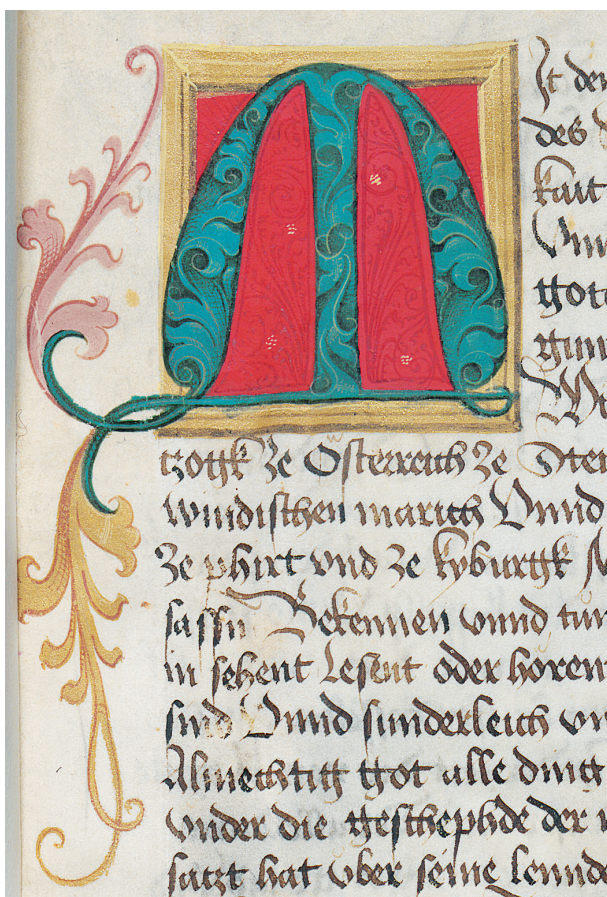 M
It der
des
kait
Vnd
gote
gnnn
tzogk ze Osterreich ze Stei
windischen march Vnnd
ze phirt vnd ze kyburgk
sassn Bekennen vnnd tun
in sehent Lesent oder horen
sind Vnnd sunderleich vn
Almechtig got alle ding
vnder die geschephde der
satzt hat vber seine lennde